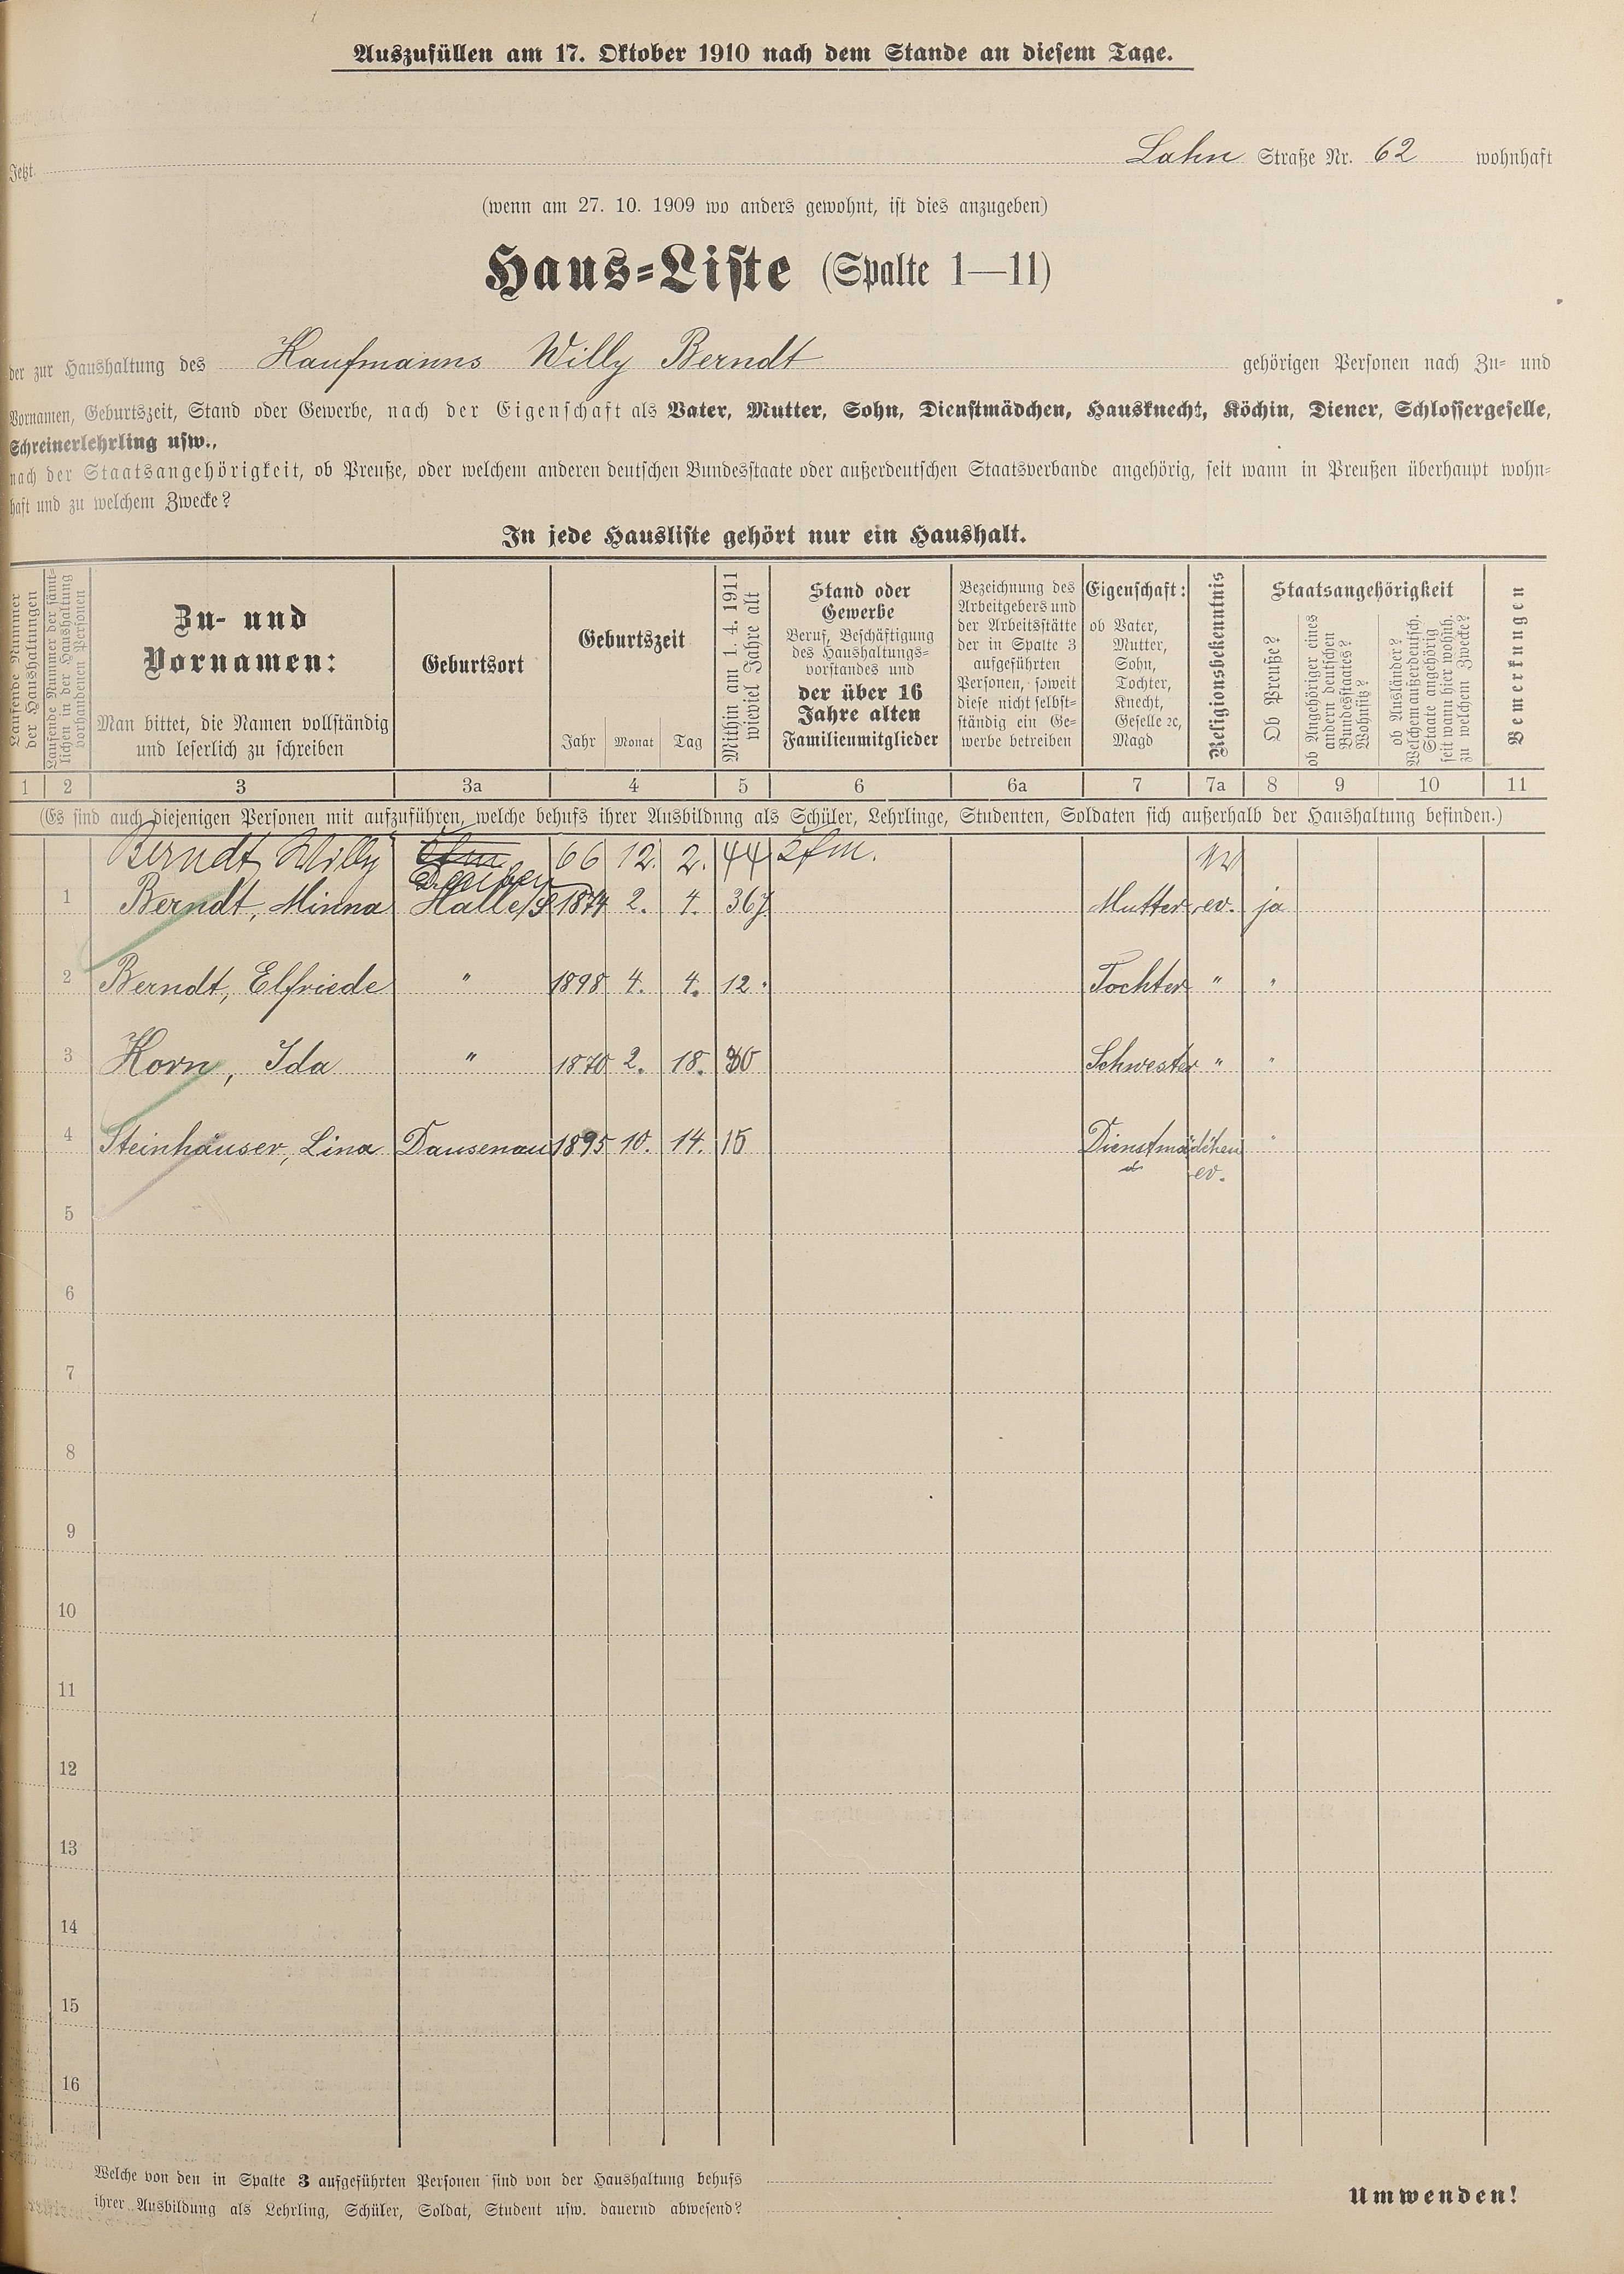 Auszufüllen am 17. Oktober 1910 nach dem Stande an diesem Tage.
Jetzt Lahn Straße Nr. 62 wohnhaft
(wenn am 27. 10. 1909 wo anders gewohnt, ist dies anzugeben)
Haus=Liste (Spalte 1—11)
der zur Haushaltung des Kaufmanns Willy Berndt gehörigen Personen nach Zu= und
Vornamen, Geburtszeit, Stand oder Gewerbe, nach der Eigenschaft als Vater, Mutter, Sohn, Dienstmädchen, Hausknecht, Köchin, Diener, Schlossergeselle,
Schreinerlehrling usw.,
nach der Staatsangehörigkeit, ob Preuße, oder welchem anderen deutschen Bundesstaate oder außerdeutschen Staatsverbande angehörig, seit wann in Preußen überhaupt wohn=
haft und zu welchem Zwecke?
In jede Hausliste gehört nur ein Haushalt.
Laufende Nummer
der Haushaltungen
Laufende Nummer der sämt=
lichen in der Haushaltung
vorhandenen Personen
Zu- und
Vornamen:
Man bittet, die Namen vollständig
und leserlich zu schreiben
Geburtsort
Geburtszeit
Jahr Monat Tag
Mithin am 1. 4. 1911
wieviel Jahre alt
Stand oder
Gewerbe
Beruf, Beschäftigung
des Haushaltungs=
vorstandes und
der über 16
Jahre alten
Familienmitglieder
Bezeichnung des
Arbeitgebers und
der Arbeitsstätte
der in Spalte 3
aufgeführten
Personen, soweit
diese nicht selbst=
ständig ein Ge=
werbe betreiben
Eigenschaft:
ob Vater,
Mutter,
Sohn,
Tochter,
Knecht,
Geselle ꝛc,
Magd
Religionsbekenntnis
Staatsangehörigkeit
Ob Preuße?
ob Angehöriger eines
andern deutschen
Bundesstaates?
Wohnsitz?
ob Ausländer?
Welchem außerdeutsch.
Staate angehörig
seit wann hier wohnh.
zu welchem Zwecke?
Bemerkungen
1 2 3 3a 4 5 6 6a 7 7a 8 9 10 11
(Es sind auch diejenigen Personen mit aufzuführen, welche behufs ihrer Ausbildung als Schüler, Lehrlinge, Studenten, Soldaten sich außerhalb der Haushaltung befinden.)
Berndt, Willy 66 12. 2. 44
1 Berndt, Minna Halle/S 1874 2. 4. 36 Mutter ev. ja
2 Berndt, Elfriede " 1898 4. 4. 12 Tochter " "
3 Korn, Ida " 1870 2. 18. 30 Schwester " "
4 Steinhäuser, Lina Dausenau 1895 10. 14. 15 Dienstmädchen "
ev.
5
6
7
8
9
10
11
12
13
14
15
16
Welche von den in Spalte 3 aufgeführten Personen sind von der Haushaltung behufs
ihrer Ausbildung als Lehrling, Schüler, Soldat, Student usw. dauernd abwesend?
Umwenden!